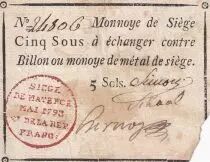 No. 24806 Monnoye de Siège
Cinq Sous à échanger contre
Billon ou monoye de métal de siège.
5 Sols.
SIEGE
DE MAYENCE
MAI 1793
2e DE LA REP
FRANC.